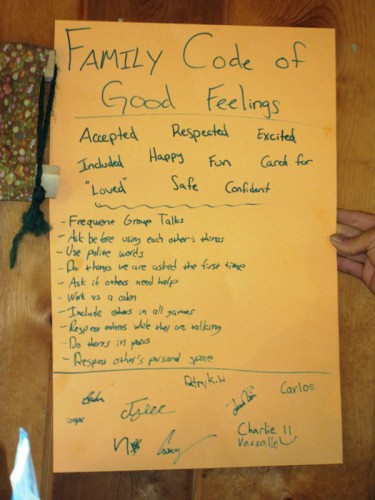 FAMILY Code of
Good Feelings
Accepted Respected Excited
Included Happy Fun Cared for
"Loved" Safe Confident
- Frequent Group Talks
- Ask before using each other's things
- Use polite words
- Do things we are asked the first time
- Ask if others need help
- Work as a
- Include others in all games
- Respect others while they are talking
- Do things in pairs
- Respect other's personal space
Patrik.W
Carlos
Casey
Charlie 11
Vassallo